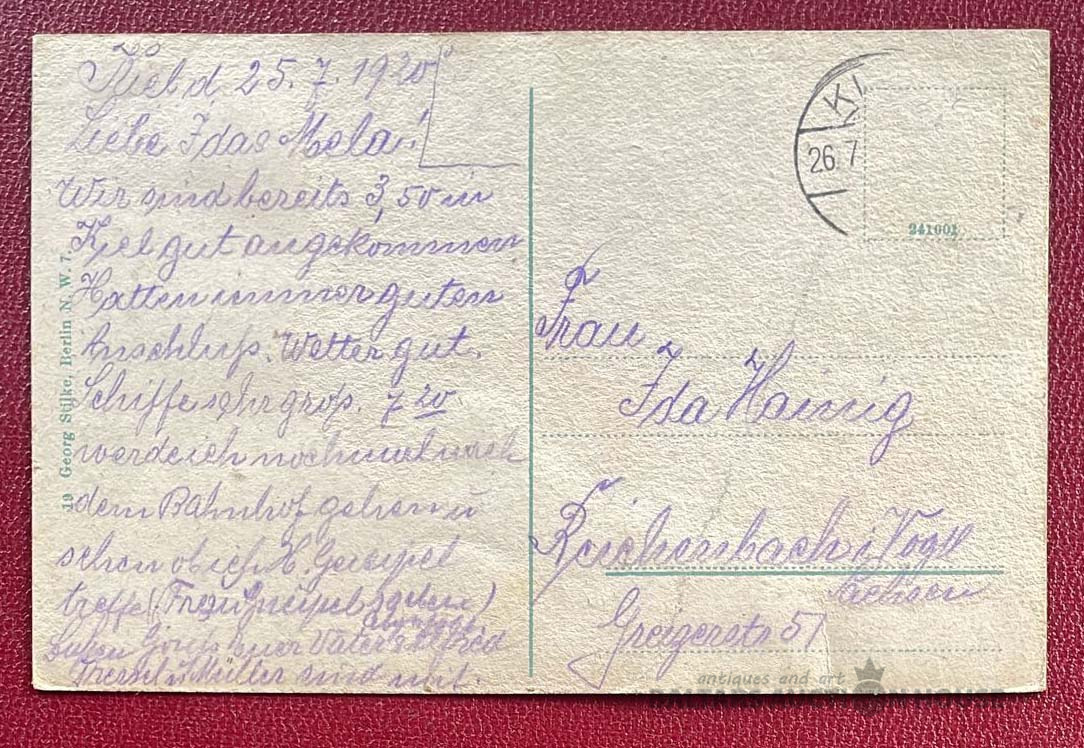 Kiel d 25. 7. 1920
Liebe Idas Mela!
Wir sind bereits 3,50 in
Kiel gut angekommen
Hatten immer guten
Anschluß. Wetter gut.
Schiffe sehr groß. 7 20
werde ich nochmal nach
dem Bahnhof gehen u
sehen ob ich H. Gneipel
treffe. (Frau Gneipel geben)
Gruß euer Vater &
u Müller sind mit.
19 Georg Stilke, Berlin N. W. 7.
KI
26. 7
241001
Frau
Ida Hainig
Reichenbach i Vogtl
Sachsen
Greizerstr 57
antiques and art